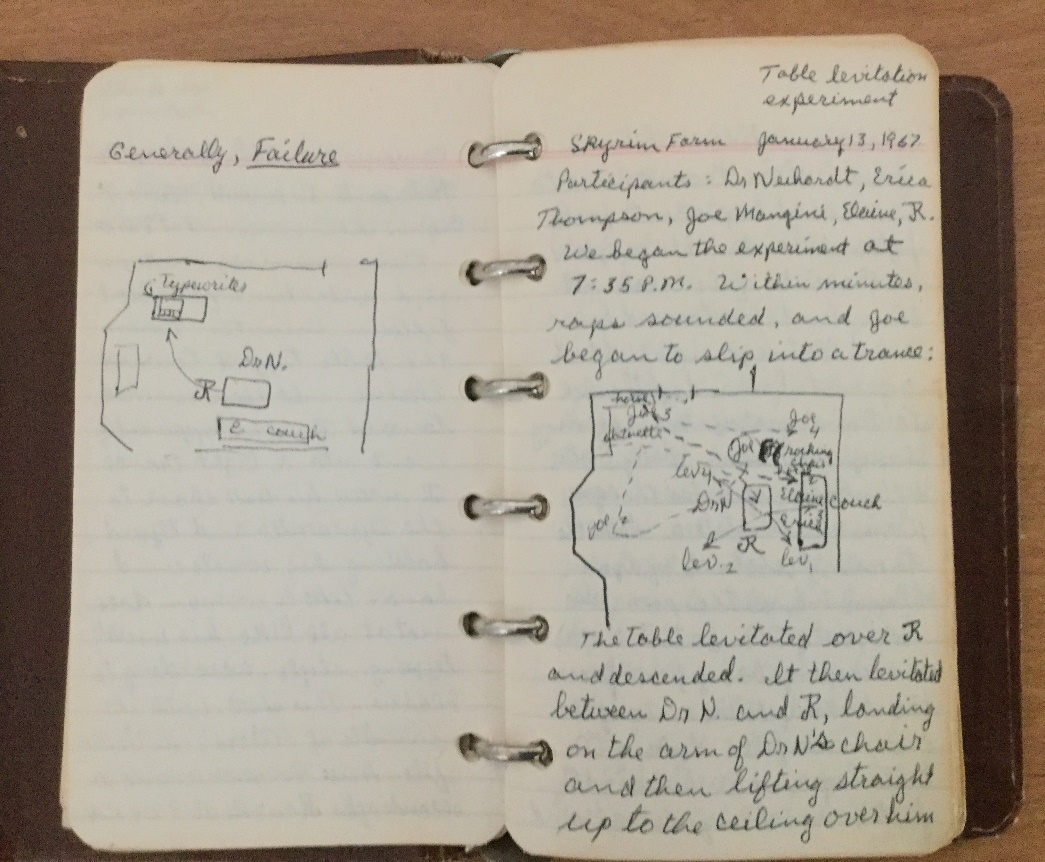 Generally, Failure
Typewrites
Dr N.
R
couch
Table levitation
experiment
SKyrim Farm January 13, 1967
Participants: Dr Neihardt, Erica
Thompson, Joe Mangini, Elaine, R.
We began the experiment at
7:35 P.M. Within minutes,
raps sounded, and Joe
began to slip into a trance:
Joe 3
Joe
4
Joe
rocking
chair
lev 4
Dr N
Elaine
couch
Joe 2
R
lev. 2
lev, 1
The table levitated over R
and descended. It then levitated
between Dr N. and R, landing
on the arm of Dr N's chair
and then lifting straight
up to the ceiling over him